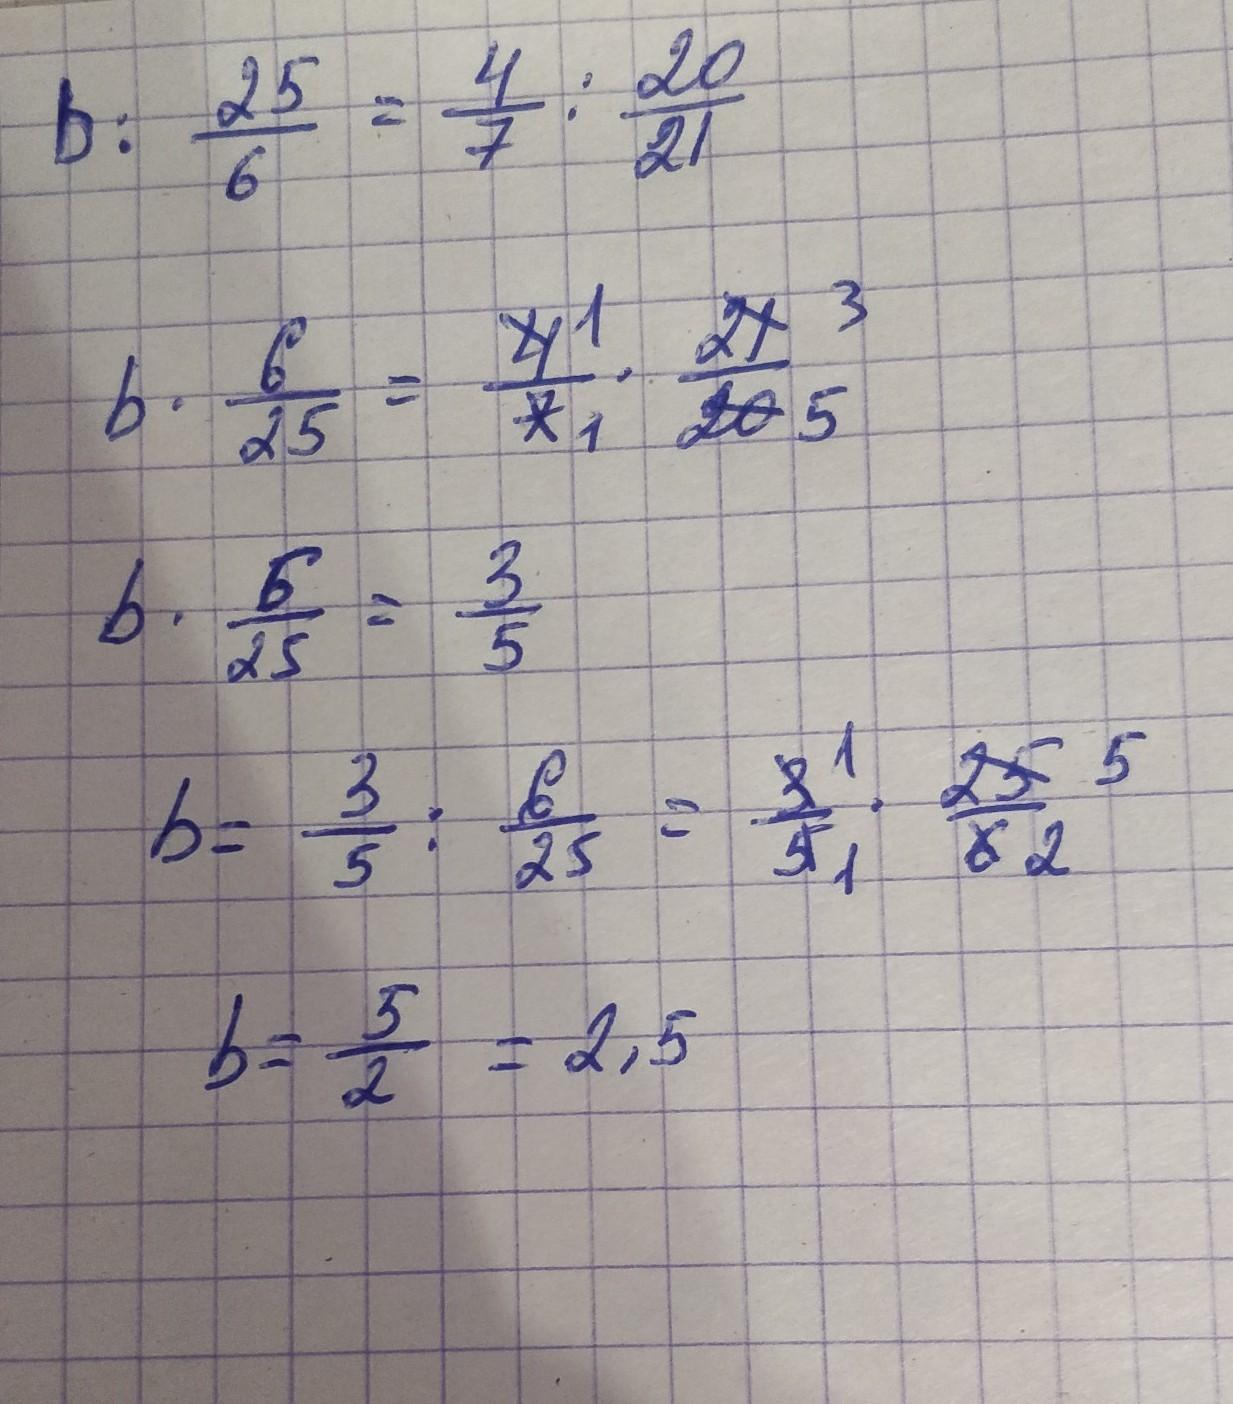 b : 25/6 = 4/7 : 20/21
b · 6/25 = 4 1/7 1 · 21 3/20 5
b · 6/25 = 3/5
b = 3/5 : 6/25 = 3 1/5 1 · 25 5/6 2
b = 5/2 = 2,5